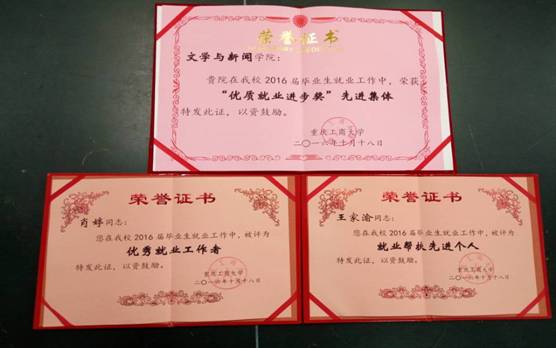 荣誉证书
文学与新闻学院:
贵院在我校2016届毕业生就业工作中,荣获
“优质就业进步奖”先进集体
特发此证,以资鼓励。
重庆工商大学
二〇一六年十月十八日
荣誉证书
肖婷同志:
您在我校2016届毕业生就业工作中,被评为
优秀就业工作者
特发此证,以资鼓励。
重庆工商大学
二〇一六年十月十八日
荣誉证书
王家渝同志:
您在我校2016届毕业生就业工作中,被评为
就业帮扶先进个人
特发此证,以资鼓励。
重庆工商大学
二〇一六年十月十八日